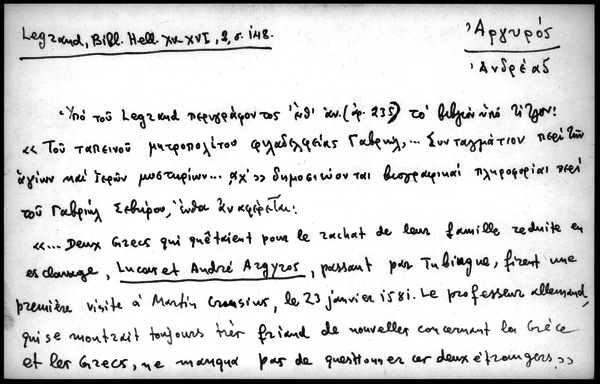 Legrand, Bibl. Hell. XV-XVI, 2, σ. 148.
Ἀργυρός
Ἀνδρέας
Ὑπό τοῦ Legrand περιγράφοντος (ἀρ. 235) τό βιβλίον ὑπό τίτλον:
« Τοῦ ταπεινοῦ μητροπολίτου φιλαδελφείας Γαβριήλ,... Συνταγμάτιον περί τῶν
ἁγίων καί ἱερῶν μυστηρίων... » δημοσιεύονται βιογραφικαί πληροφορίαι περί
τοῦ Γαβριήλ Σεβήρου, ἔνθα ἀναφέρεται:
«... Deux Grecs qui quêtaient pour le rachat de leur famille reduite en
esclavage, Lucas et André Argyros, passant par Tubingue, firent une
première visite à Martin Crousius, le 23 janvier 1581. Le professeur allemand,
qui se montrait toujours très friand de nouvelles concernant la Grèce
et les Grecs, ne manqua pas de questionner ces deux étrangers »